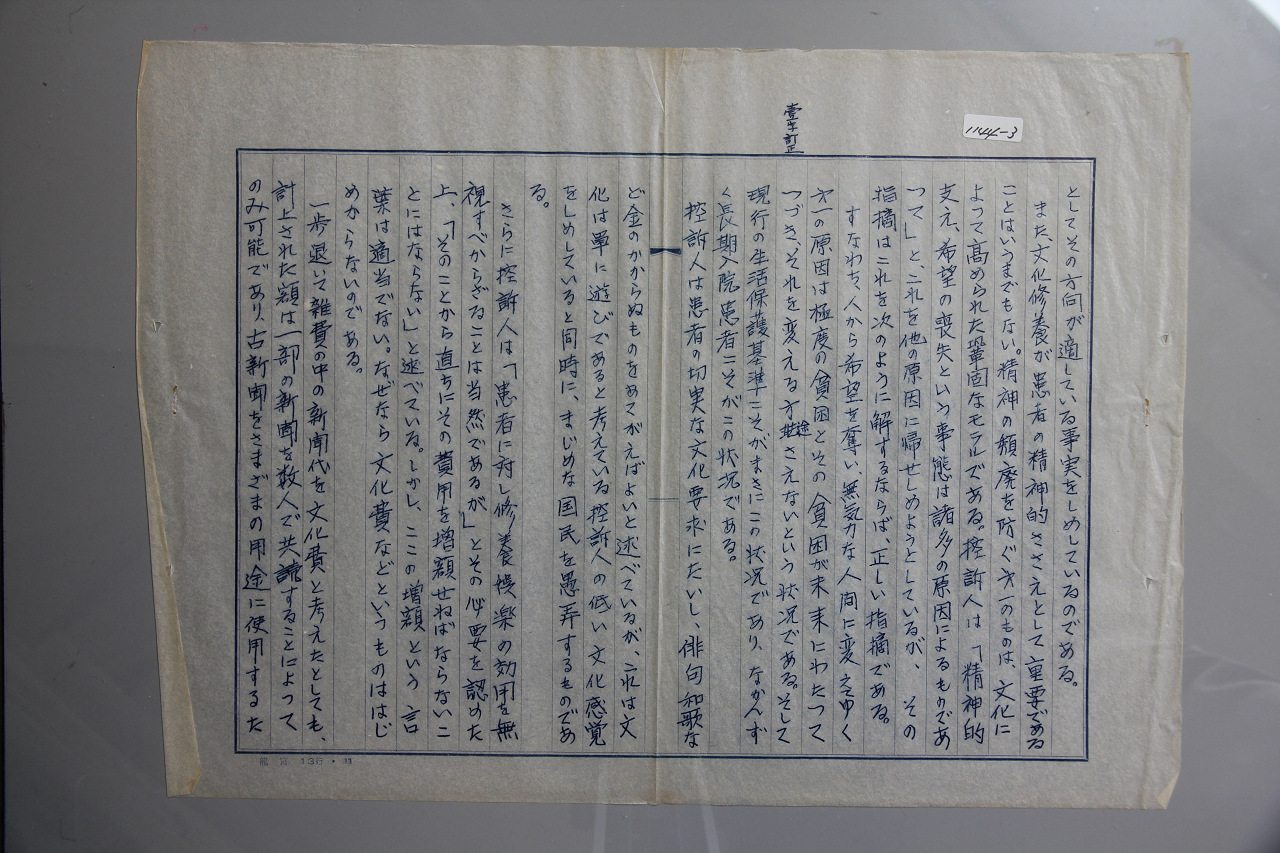 1144-3
壱字訂正
としてその方向が適している事実をしめしているのである。
また、文化修養が患者の精神的ささえとして重要である
ことはいうまでもない。精神の頽廃を防ぐ第一のものは、文化に
よって高められた鞏固なモラルである。控訴人は「精神的
支え、希望の喪失という事態は諸多の原因によるものであ
って」と、これを他の原因に帰せしめようとしているが、その
指摘はこれを次のように解するならば、正しい指摘である。
すなわち、人から希望を奪い、無気力な人間に変えてゆく
第一の原因は極度の貧困とその貧困が未来にわたって
つづき、それを変える方途さえないという状況である。そして
現行の生活保護基準こそがまさにこの状況であり、なかんず
く長期入院患者こそがこの状況である。
控訴人は患者の切実な文化要求にたいし、俳句和歌な
ど金のかからぬものをあてがえばよいと述べているが、これは文
化は単に遊びであると考えている控訴人の低い文化感覚
をしめしていると同時に、まじめな国民を愚弄するものであ
る。
さらに控訴人は「患者に対し修養娯楽の効用を無
視すべからざることは当然であるが」とその必要を認めた
上、「そのことから直ちにその費用を増額せねばならないこ
とにはならない」と述べている。しかし、ここの増額という言
葉は適当でない。なぜなら文化費などというものははじ
めからないのである。
一歩退いて雑費の中の新聞代を文化費と考えたとしても、
計上された額は一部の新聞を数人で共読することによって
のみ可能であり、古新聞をさまざまの用途に使用するた
13行